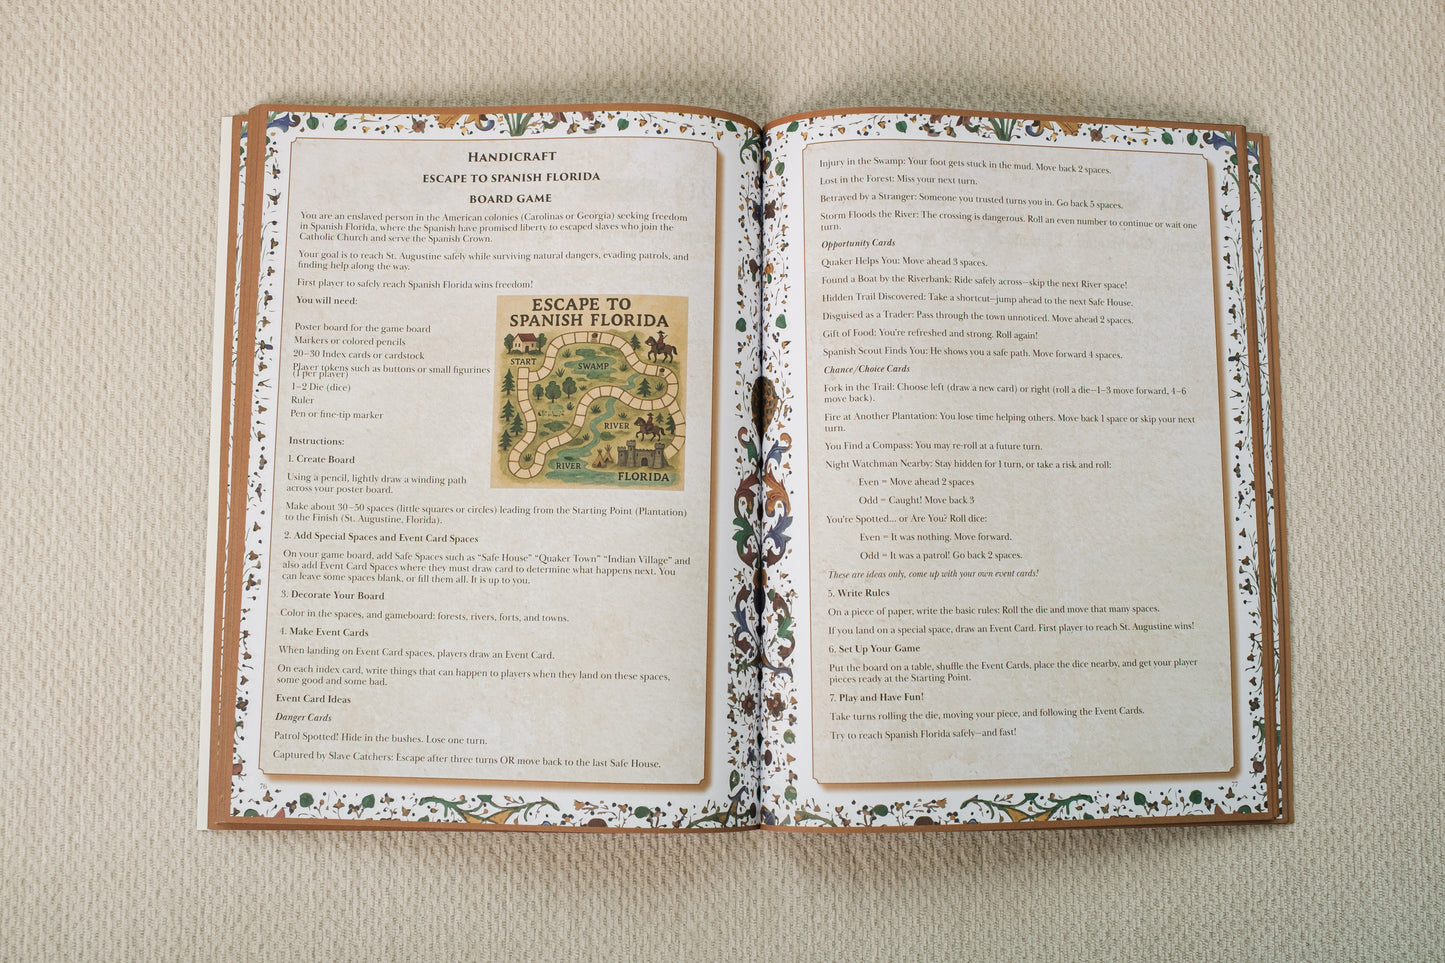 HANDICRAFT
ESCAPE TO SPANISH FLORIDA
BOARD GAME
You are an enslaved person in the American colonies (Carolinas or Georgia) seeking freedom
in Spanish Florida, where the Spanish have promised liberty to escaped slaves who join the
Catholic Church and serve the Spanish Crown.
Your goal is to reach St. Augustine safely while surviving natural dangers, evading patrols, and
finding help along the way.
First player to safely reach Spanish Florida wins freedom!
You will need:
Poster board for the game board
Markers or colored pencils
20–30 Index cards or cardstock
Player tokens such as buttons or small figurines
(1 per player)
1–2 Die (dice)
Ruler
Pen or fine-tip marker
ESCAPE TO
SPANISH FLORIDA
START
SWAMP
RIVER
RIVER
FLORIDA
Instructions:
1. Create Board
Using a pencil, lightly draw a winding path
across your poster board.
Make about 30–50 spaces (little squares or circles) leading from the Starting Point (Plantation)
to the Finish (St. Augustine, Florida).
2. Add Special Spaces and Event Card Spaces
On your game board, add Safe Spaces such as “Safe House” “Quaker Town” “Indian Village” and
also add Event Card Spaces where they must draw card to determine what happens next. You
can leave some spaces blank, or fill them all. It is up to you.
3. Decorate Your Board
Color in the spaces, and gameboard: forests, rivers, forts, and towns.
4. Make Event Cards
When landing on Event Card spaces, players draw an Event Card.
On each index card, write things that can happen to players when they land on these spaces,
some good and some bad.
Event Card Ideas
Danger Cards
Patrol Spotted! Hide in the bushes. Lose one turn.
Captured by Slave Catchers: Escape after three turns OR move back to the last Safe House.
76
Injury in the Swamp: Your foot gets stuck in the mud. Move back 2 spaces.
Lost in the Forest: Miss your next turn.
Betrayed by a Stranger: Someone you trusted turns you in. Go back 5 spaces.
Storm Floods the River: The crossing is dangerous. Roll an even number to continue or wait one
turn.
Opportunity Cards
Quaker Helps You: Move ahead 3 spaces.
Found a Boat by the Riverbank: Ride safely across—skip the next River space!
Hidden Trail Discovered: Take a shortcut—jump ahead to the next Safe House.
Disguised as a Trader: Pass through the town unnoticed. Move ahead 2 spaces.
Gift of Food: You're refreshed and strong. Roll again!
Spanish Scout Finds You: He shows you a safe path. Move forward 4 spaces.
Chance/Choice Cards
Fork in the Trail: Choose left (draw a new card) or right (roll a die—1–3 move forward, 4–6
move back).
Fire at Another Plantation: You lose time helping others. Move back 1 space or skip your next
turn.
You Find a Compass: You may re-roll at a future turn.
Night Watchman Nearby: Stay hidden for 1 turn, or take a risk and roll:
Even = Move ahead 2 spaces
Odd = Caught! Move back 3
You're Spotted... or Are You? Roll dice:
Even = It was nothing. Move forward.
Odd = It was a patrol! Go back 2 spaces.
These are ideas only, come up with your own event cards!
5. Write Rules
On a piece of paper, write the basic rules: Roll the die and move that many spaces.
If you land on a special space, draw an Event Card. First player to reach St. Augustine wins!
6. Set Up Your Game
Put the board on a table, shuffle the Event Cards, place the dice nearby, and get your player
pieces ready at the Starting Point.
7. Play and Have Fun!
Take turns rolling the die, moving your piece, and following the Event Cards.
Try to reach Spanish Florida safely—and fast!
77